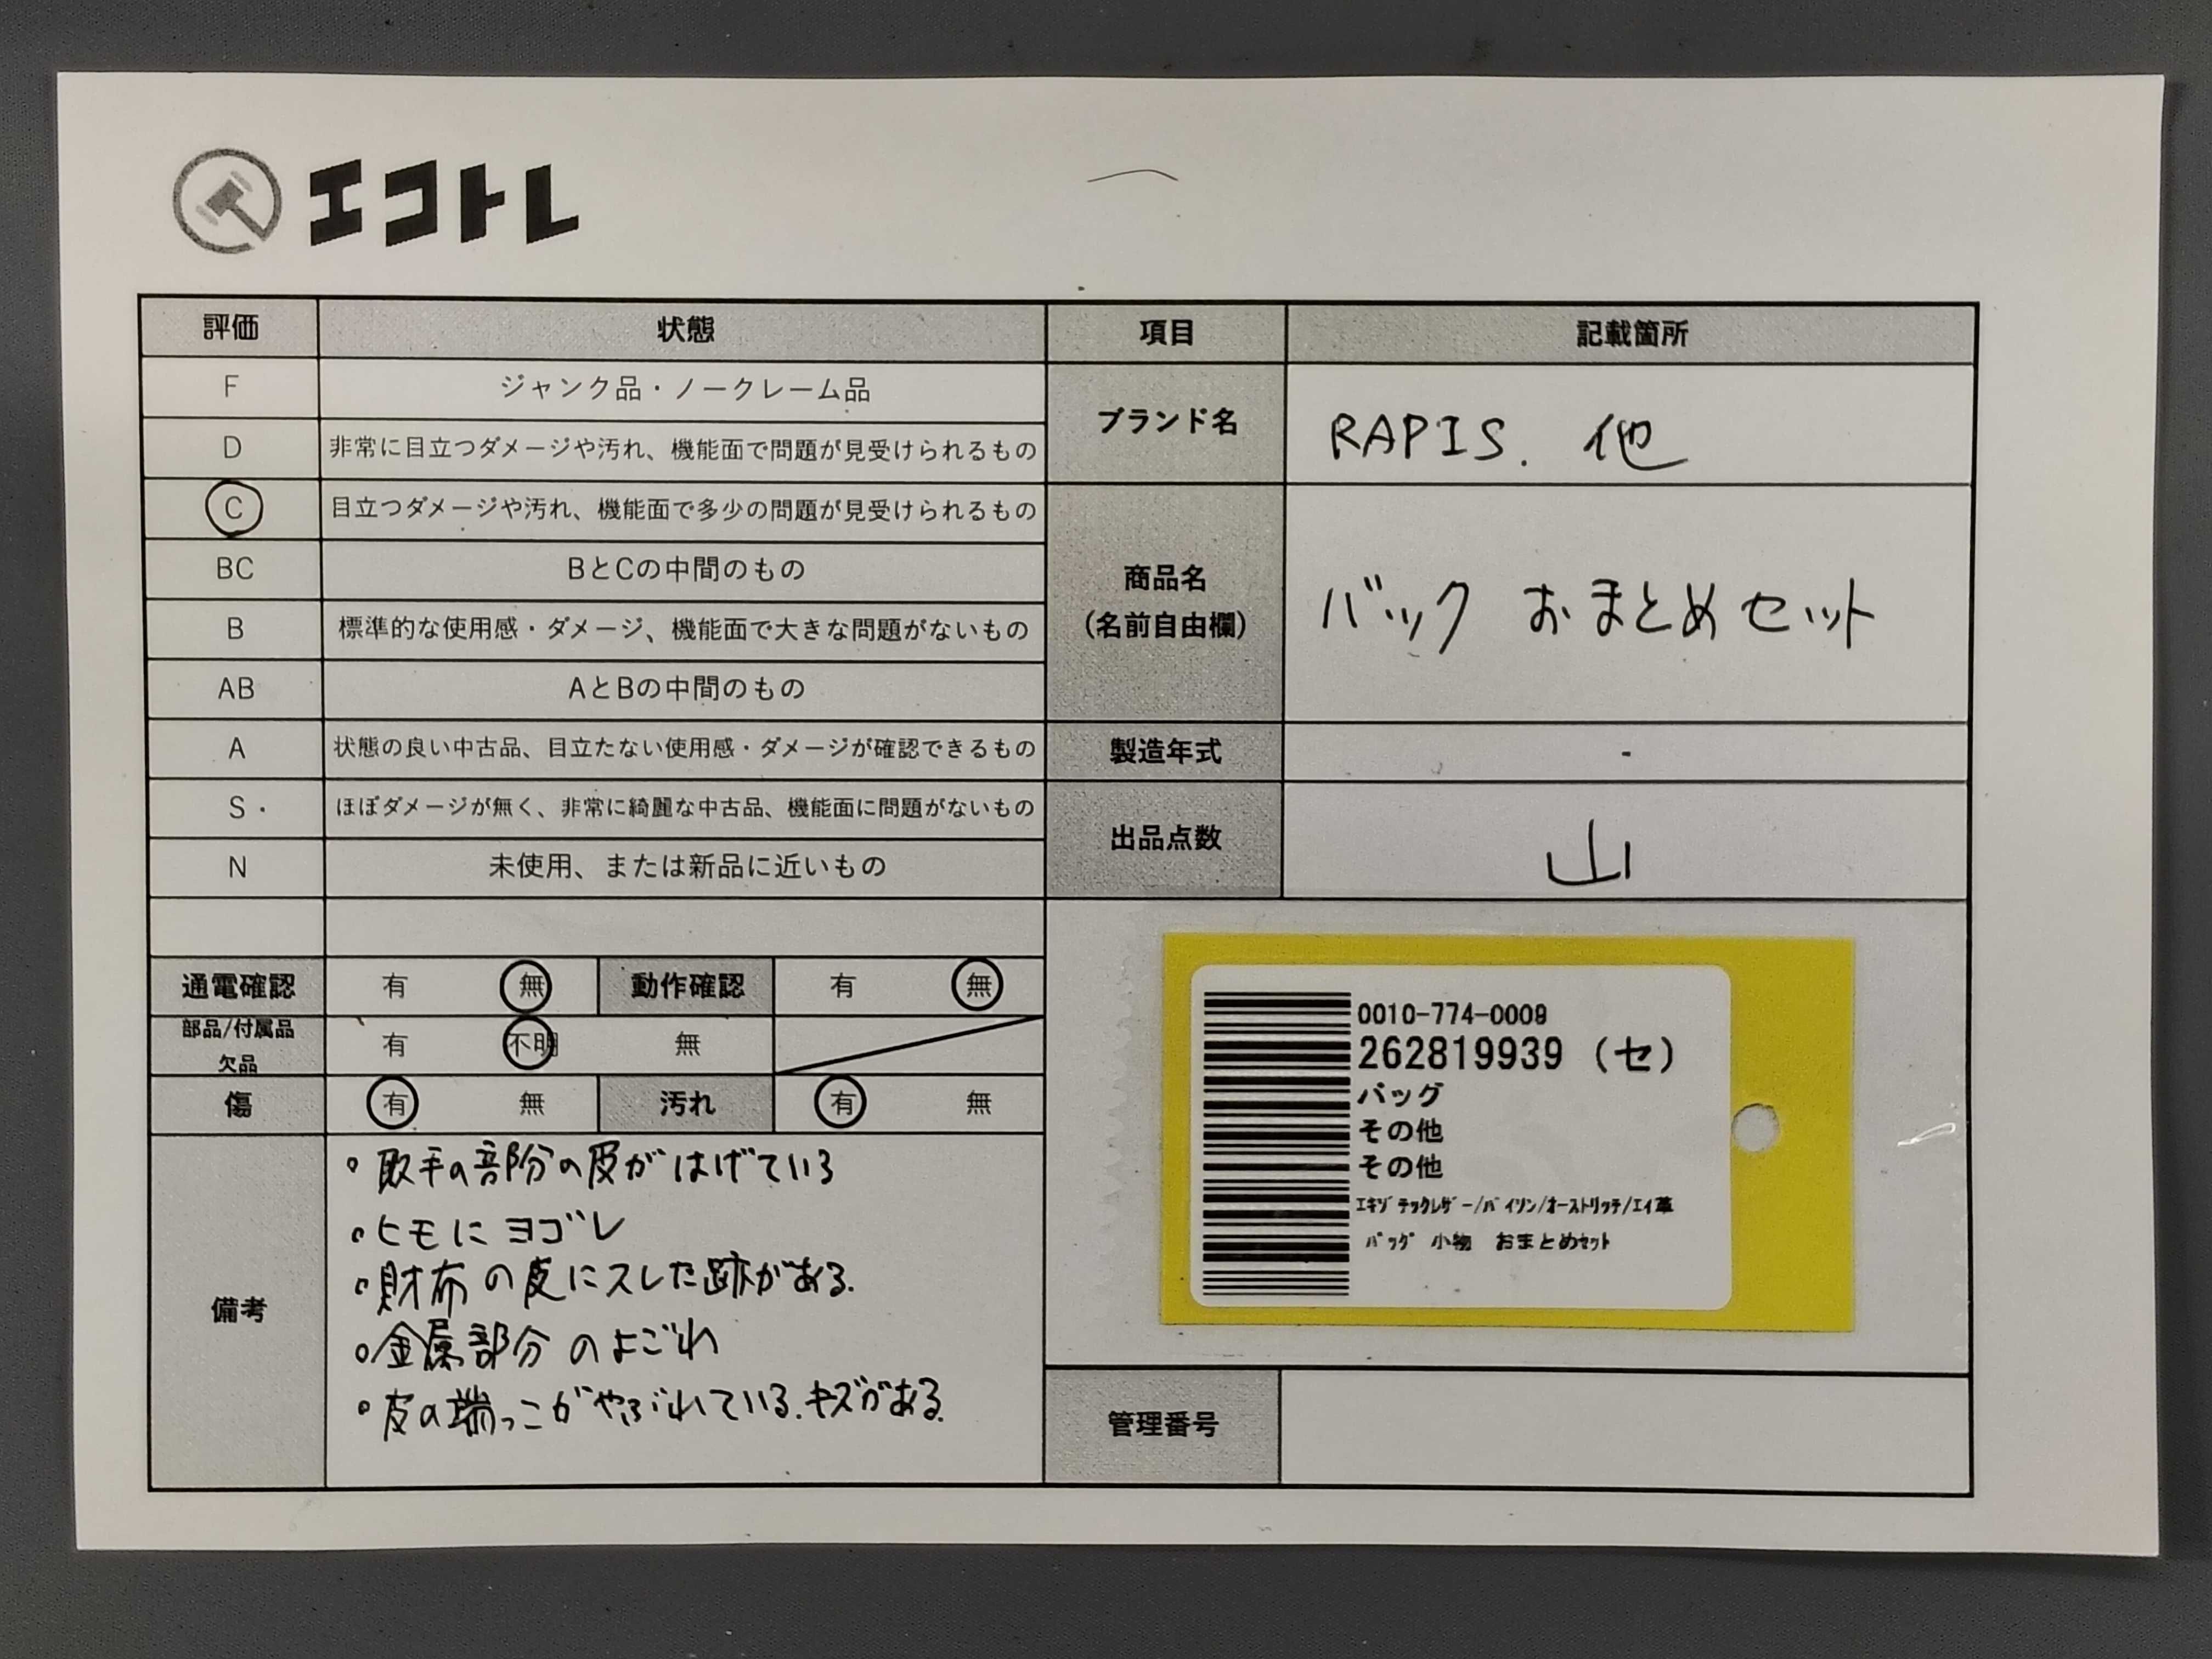 エコトレ
評価 状態 項目 記載箇所
F ジャンク品・ノークレーム品
D 非常に目立つダメージや汚れ、機能面で問題が見受けられるもの
ブランド名 RAPIS. 他
C 目立つダメージや汚れ、機能面で多少の問題が見受けられるもの
BC BとCの中間のもの
B 標準的な使用感・ダメージ、機能面で大きな問題がないもの
商品名
(名前自由欄)
バック おまとめセット
AB AとBの中間のもの
A 状態の良い中古品、目立たない使用感・ダメージが確認できるもの
製造年式 -
S・ ほぼダメージが無く、非常に綺麗な中古品、機能面に問題がないもの
出品点数 山
N 未使用、または新品に近いもの
通電確認 有 無 動作確認 有 無
部品/付属品
欠品
有 不明 無
傷 有 無 汚れ 有 無
備考
・取手の部分の皮がはげている
・ヒモにヨゴレ
・財布の皮にスレた跡がある.
・金属部分のよごれ
・皮の端っこがやぶれている.キズがある.
0010-774-0009
262819939 (セ)
バッグ
その他
その他
エキゾチックレザー/パイソン/オーストリッチ/エイ革
バッグ 小物 おまとめセット
管理番号